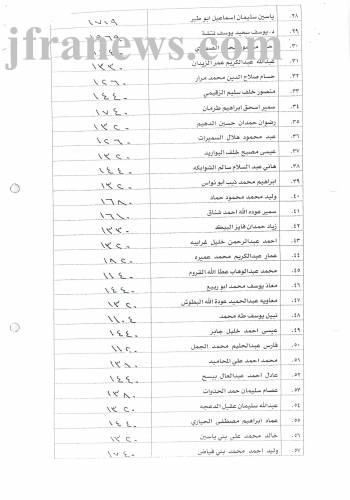 jfranews.com
٢٨. ياسين سليمان اسماعيل ابو طير ١٧١٩
٢٩. د. يوسف سعيد يوسف
٣٠. محمود
٣١. عبدالله عبدالكريم عمر الزيدان ١٣٣٠
٣٢. حسام صلاح الدين محمد مرار ١٢٦٠
٣٣. منصور خلف سليم الرقيمي ١٤٤٠
٣٤. سمير اسحق ابراهيم طرمان ١٧٤٠
٣٥. رضوان حمدان حسين الدهيم ١٣٢٠
٣٦. عبد محمود هلال السميرات ١٢٦٠
٣٧. عيسى مصبح خلف البواريد ١٣٢٠
٣٨. هاني عبد السلام سالم الشوابكه ١٤٤٠
٣٩. ابراهيم محمد ذيب ابو نواس ١٣٢٠
٤٠. وليد محمد محمود حماد ١٦٨٠
٤١. سمير عوده الله احمد شناق ١٦٨٠
٤٢. زياد حمدان فايز البيك ١٣٣٠
٤٣. احمد عبدالرحمن خليل غرايبه ١٣٢٠
٤٤. عمار عبدالكريم محمد عميره ١٨٢٠
٤٥. محمد عبدالوهاب عطا الله القروم ١١٤٠
٤٦. معاذ يوسف محمد ابو ربيع ١٤٤٠
٤٧. معاويه عبدالحميد عودة الله البطوش ١٣٢٠
٤٨. نبيل يوسف طه محمد ١١٠٤
٤٩. عيسى احمد خليل جابر ١٤٤٠
٥٠. فارس عبدالحليم محمد الجمل ١١٢٠
٥١. محمد احمد علي المحاميد ١٣٨٠
٥٢. عادل احمد عبدالعال بيسح ١٤٤٠
٥٣. عصام سليمان حمد الحذوات ١٣٨٠
٥٤. عبدالله سليمان عقيل الدعجه ١٣٢٠
٥٥. عماد ابراهيم مصطفى الحياري ١٤٤٠
٥٦. خالد محمد علي بني ياسين ١٣٢٠
٥٧. وليد احمد محمد بني فياض ١٧٤٠